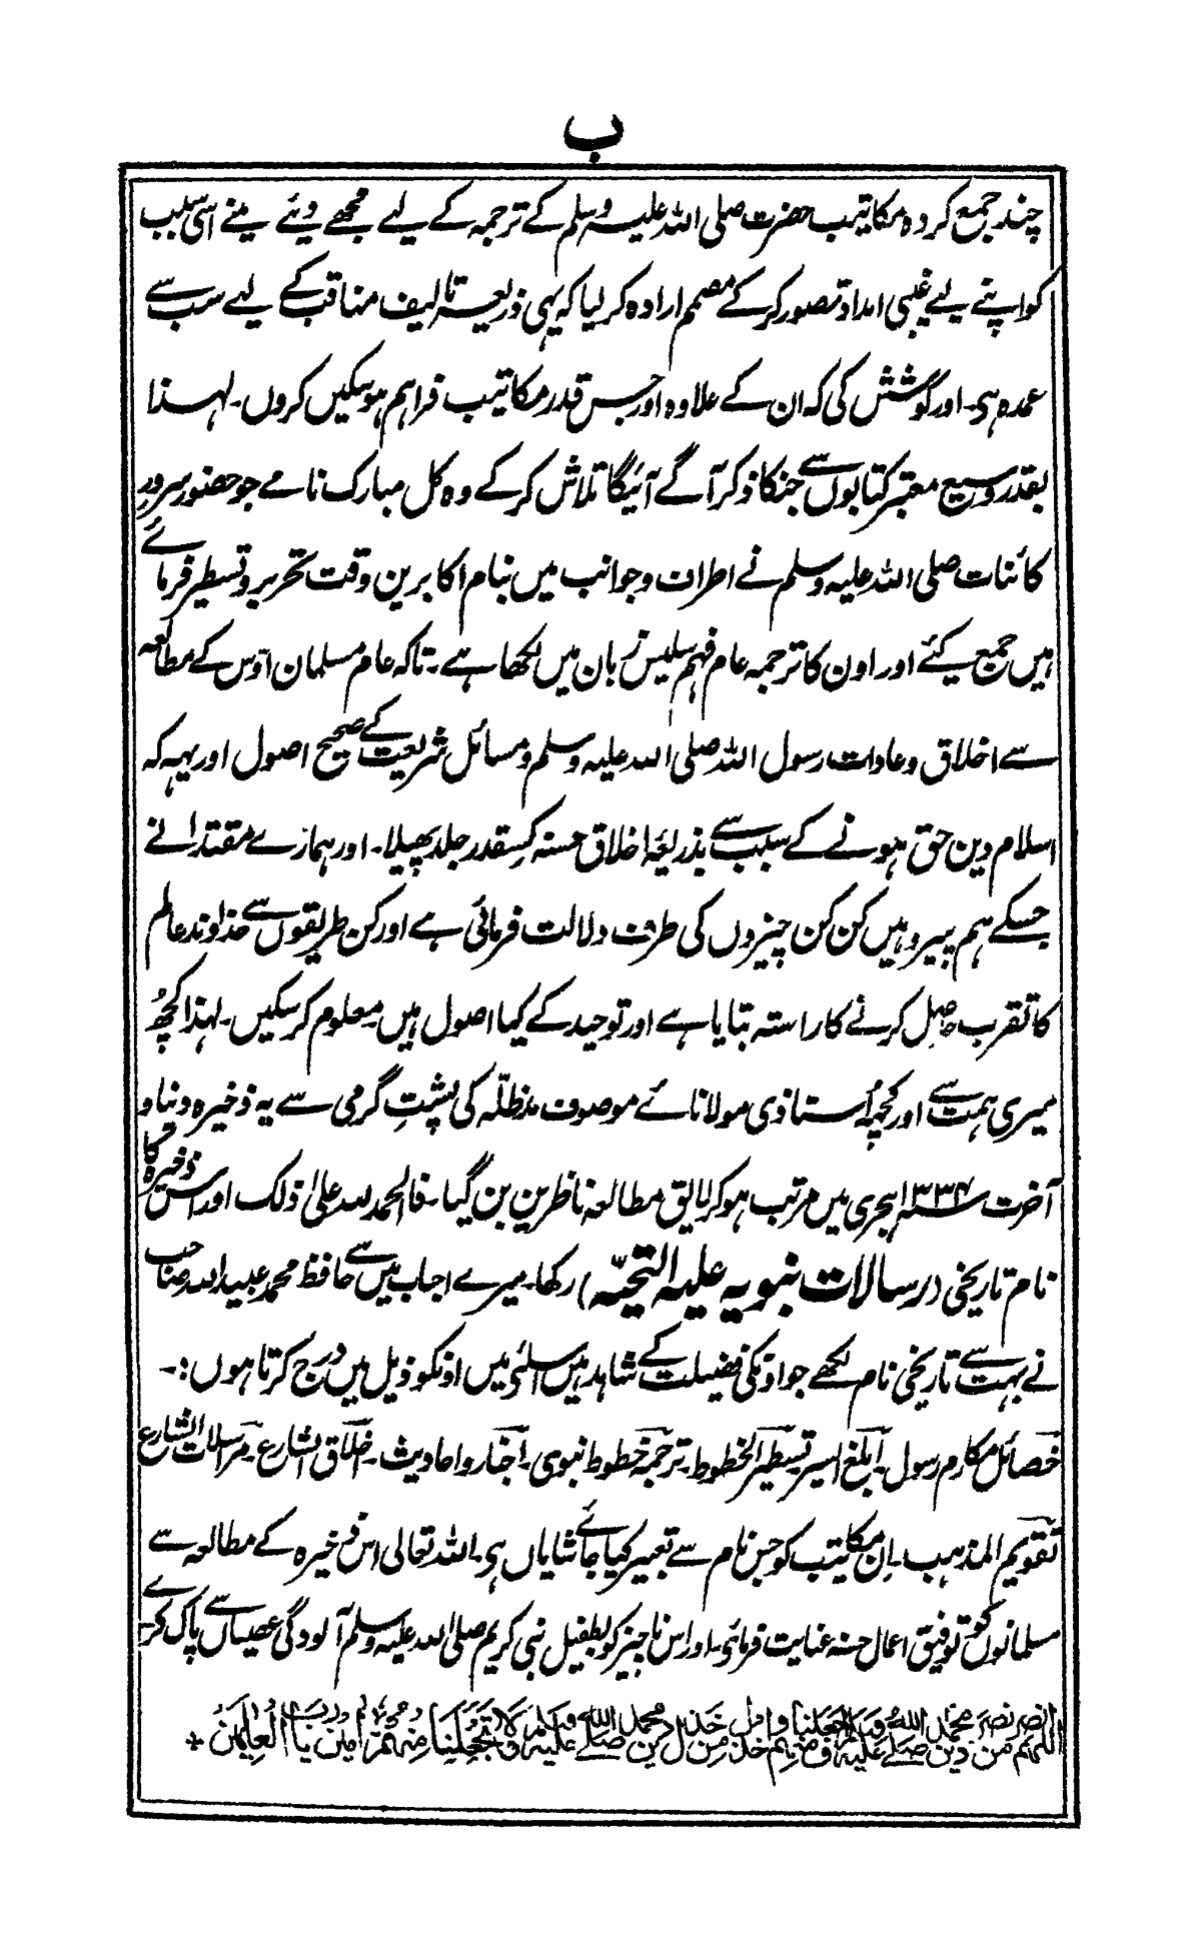 ب
چند جمع کردہ مکاتیب حضرت صلی اللہ علیہ وسلم کے ترجمہ کے لیے مجھے دیئے مینے اسی سبب
کو اپنے لیے غیبی امداد تصور کر کے مصمم ارادہ کر لیا کہ یہی ذریعہ تالیف مناقب کے لیے سب سے
عمدہ ہی۔ اور کوشش کی کہ ان کے علاوہ اور جس قدر مکاتیب فراہم ہو سکیں کروں۔ لہذا
بقدر وسیع معتبر کتابوں سے جنکا ذکر آگے آئیگا تلاش کر کے وہ کل مبارک نامے جو حضور سرور
کائنات صلی اللہ علیہ وسلم نے اطراف و جوانب میں بنام اکابرین وقت تحریر و تسطیر فرمائے
ہیں جمع کیئے اور اون کا ترجمہ عام فہم سلیس زبان میں لکھا ہے۔ تاکہ عام مسلمان اوس کے مطالعہ
سے اخلاق و عادات رسول اللہ صلی اللہ علیہ وسلم و مسائل شریعت کے صحیح اصول اور یہہ کہ
اسلام دین حق ہونے کے سبب سے بذریعۂ اخلاق حسنہ کسقدر جلد پھیلا۔ اور ہمارے مقتدا نے
جسکے ہم پیرو ہیں کن کن چیزوں کی طرف دلالت فرمائی ہے اور کن طریقوں سے خداوند عالم
کا تقرب حاصل کرنے کا راستہ بتایا ہے اور توحید کے کیا اصول ہیں معلوم کر سکیں۔ لہذا کچھ
میری ہمت سے اور کچھ اُستاذی مولانائے موصوف مدظلّہ کی پشتِ گرمی سے یہ ذخیرہ دنیا و
آخرت ۱۳۳۴ ہجری میں مرتب ہو کر لایق مطالعہ ناظرین بن گیا۔ فالحمد للہ علیٰ ذلک اور اس ذخیرہ کا
نام تاریخی (رسالات نبویہ علیہ التحیّہ) رکھا۔ میرے احباب میں سے حافظ محمد عبید اللہ صاحب
نے بہت سے تاریخی نام لکھے جو اونکی فضیلت کے شاہد ہیں اسلئے میں اونکو ذیل میں درج کرتا ہوں :۔
خصائل مکارم رسول۔ ابلغ السیر تسطیر الخطوط۔ ترجمۂ خطوط نبوی۔ اخبار و احادیث۔ اخلاق الشارع۔ مرسلات الشارع
تقویم المذہب۔ اِن مکاتیب کو جس نام سے تعبیر کیا جائے شایاں ہی۔ اللہ تعالی اس ذخیرہ کے مطالعہ سے
مسلمانوں کو توفیق اعمال حسنہ عنایت فرمائی۔ اور اس ناچیز کو بطفیل نبی کریم صلی اللہ علیہ وسلم آلودگی عصیاں سے پاک کرے
اللهم انصر من نصر دين محمد صلى الله عليه وسلم واجعلنا منهم واخذل من خذل دين محمد صلى الله عليه وسلم ولا تجعلنا منهم آمين يا رب العلمين *